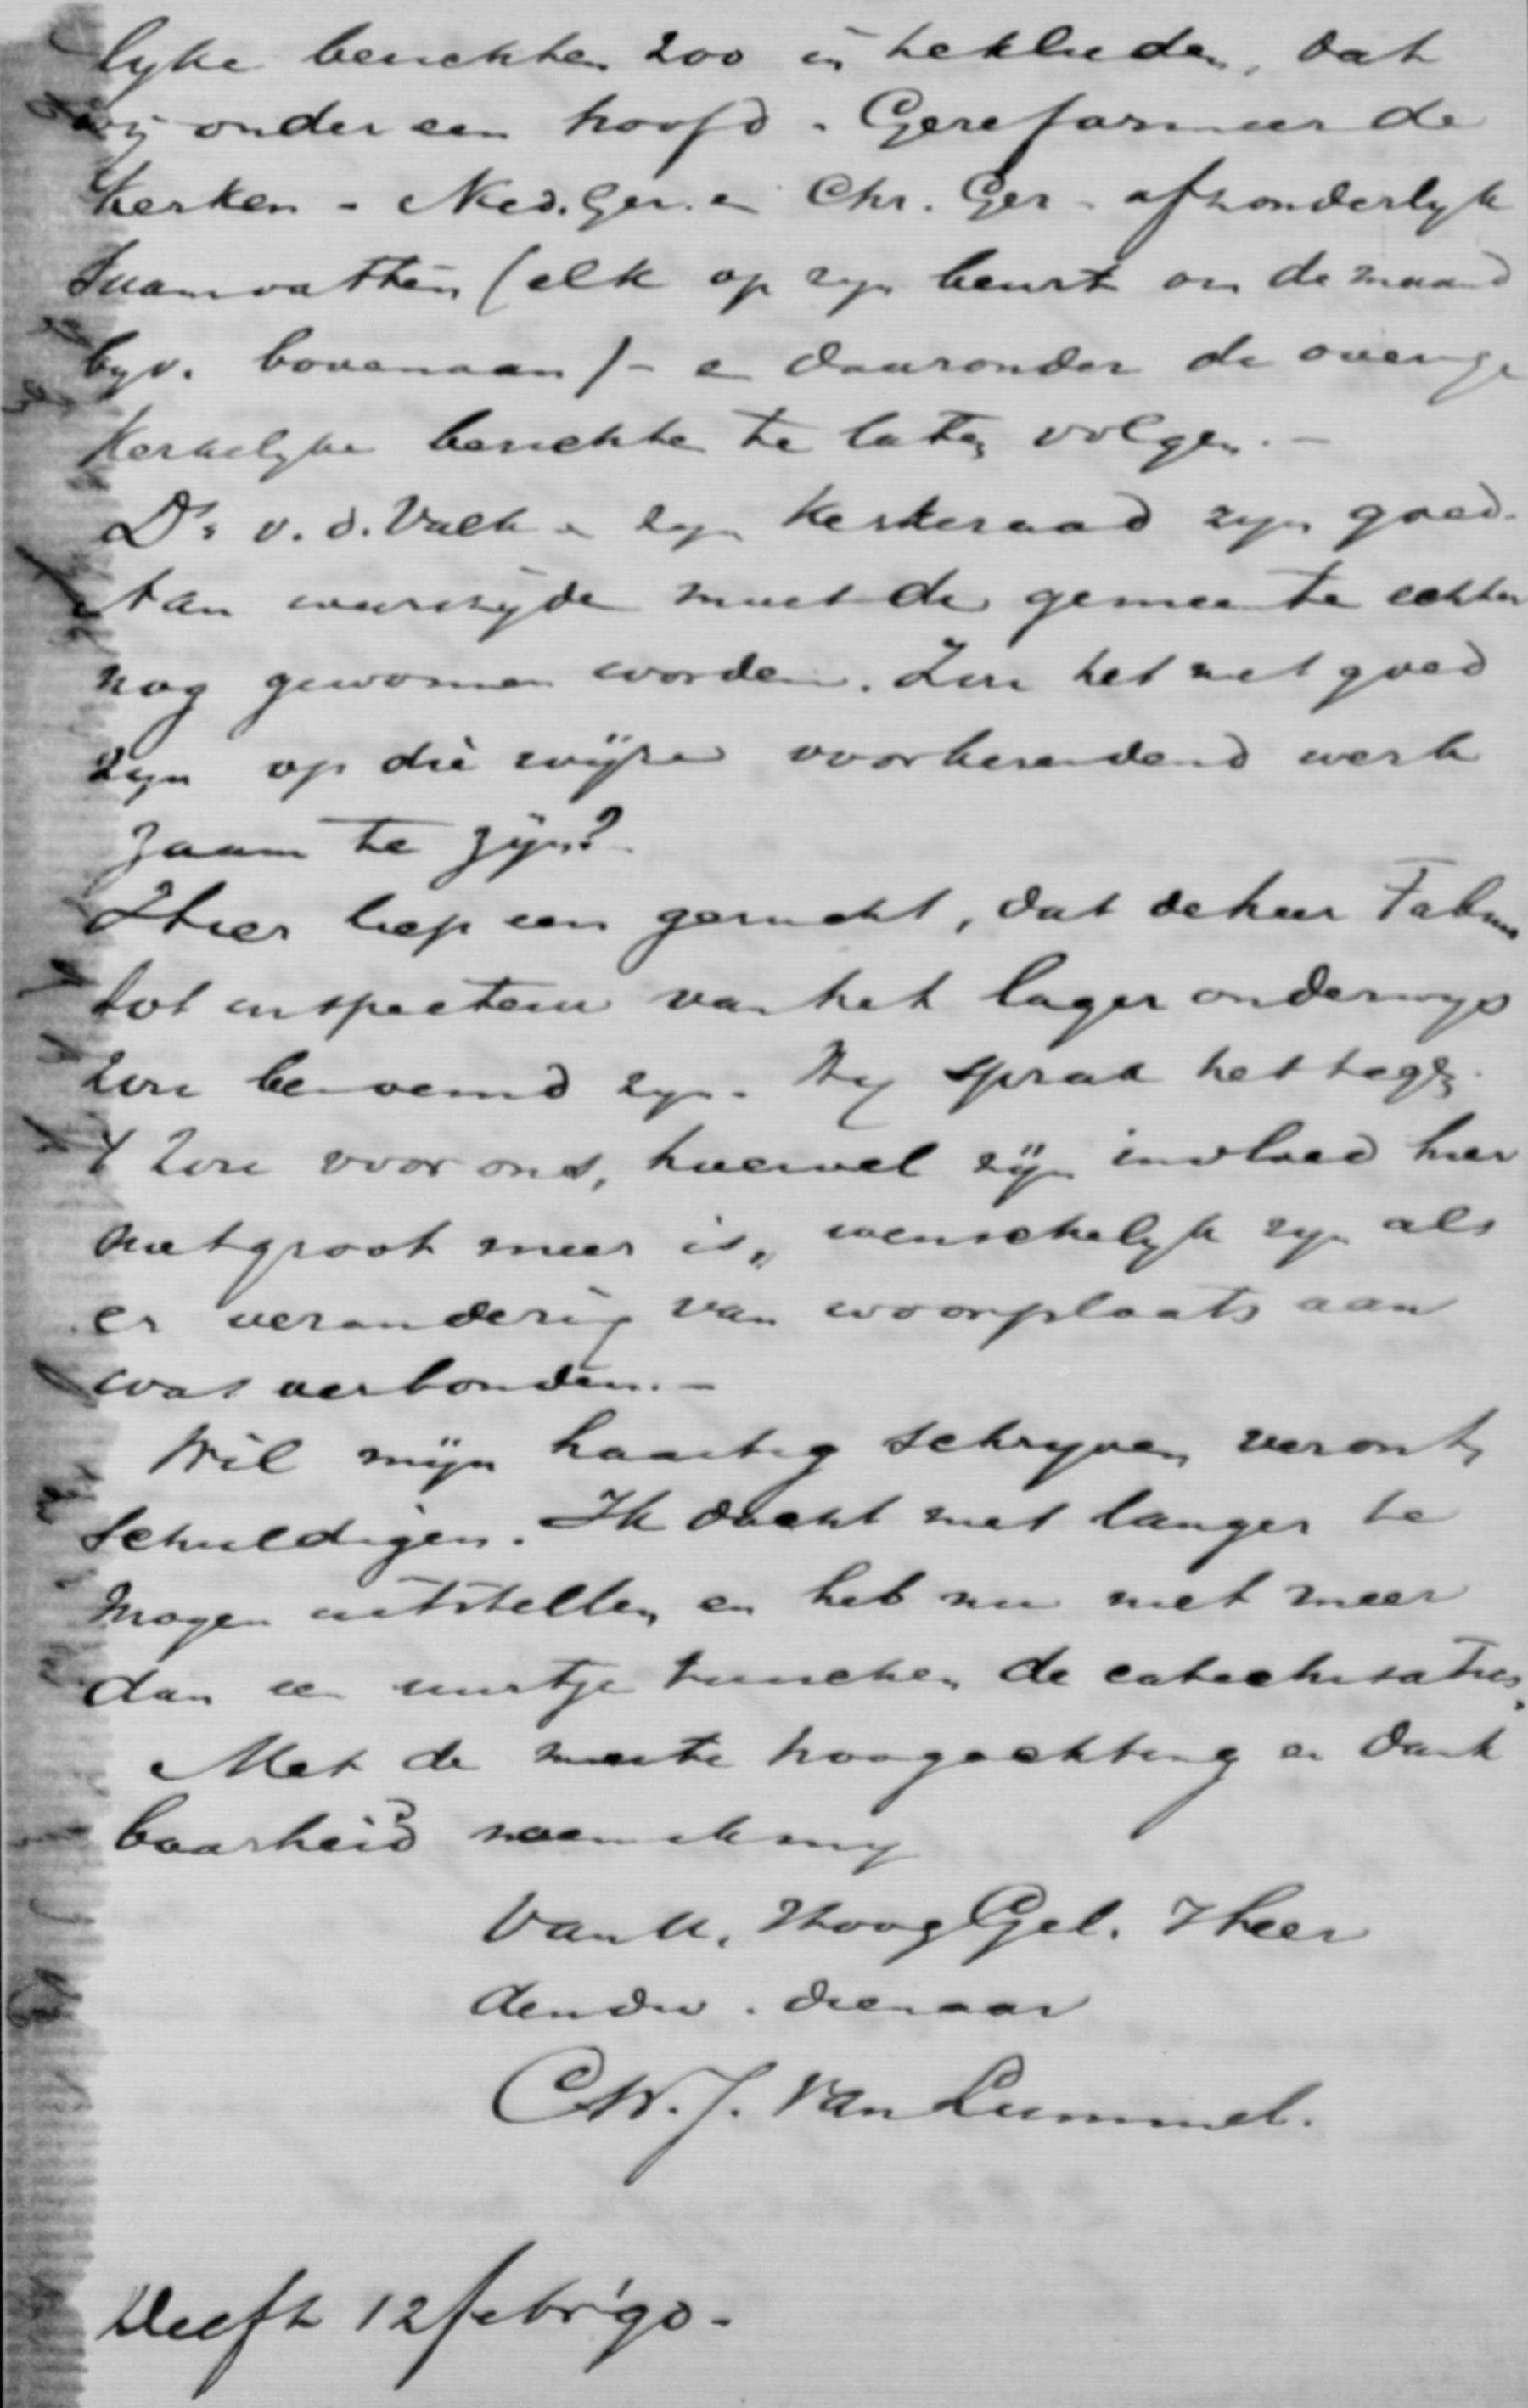 lyke berichten zoo in te kleeden, dat
wij onder een hoofd - Gereformeerde
Kerken - Ned. Ger. en Chr. Ger. afzonderlyk
saamvatten (elk op zyn beurt om de maand
byv. bovenaan) - en daaronder de overige
Kerkelyke berichten te laten volgen. -
Ds. v. d. Valk en zyn Kerkeraad zyn goed.
Van weerszyde moet de gemeente echter
nog gewonnen worden. Zou het niet goed
zyn op die wijze voorbereidend werk
zaam te zijn?
Hier liep een gerucht, dat de heer Fabius
tot inspecteur van het lager onderwys
zou benoemd zyn. Hy sprak het tegen.
't Zou voor ons, hoewel zijn invloed hier
niet groot meer is, wenschelyk zyn als
er verandering van woonplaats aan
was verbonden. -
Wil mijn haastig schryven veront
schuldigen. Ik dacht niet langer te
mogen uitstellen en heb nu niet meer
dan een uurtje tusschen de catechisaties.
Met de meeste hoogachting en dank
baarheid noem ik my
Van U, HoogGel. Heer
den dw. dienaar
C.W.J. van Lummel.
Delft 12 febr '90.